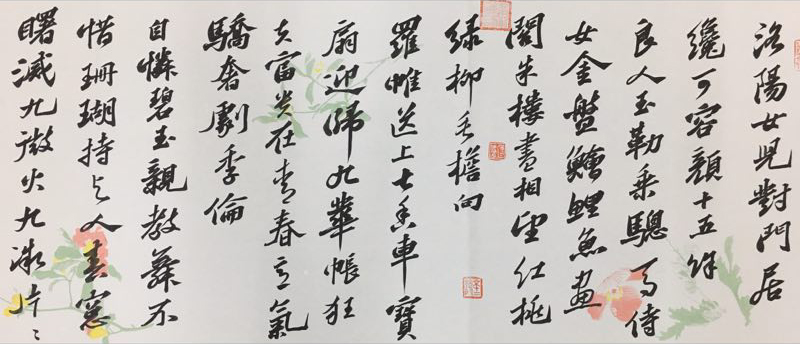 洛陽女兒對門居
纔可容顏十五餘
良人玉勒乘驄馬侍
女金盤鱠鯉魚畫
閣朱樓盡相望紅桃
綠柳垂檐向
羅帷送上七香車寶
扇迎歸九華帳狂
夫富貴在青春意氣
驕奢劇季倫
自憐碧玉親教舞不
惜珊瑚持與人春窻
曙滅九微火九微片〻